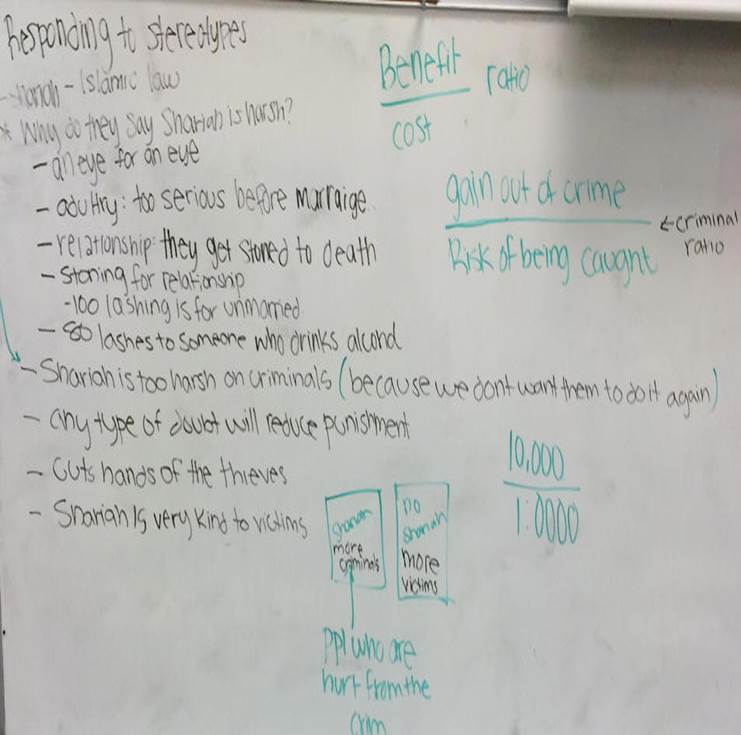 Responding to stereotypes
- shariah - Islamic law
* Why do they say Shariah is harsh?
- an eye for an eye
- adultry: too serious before marraige.
- relationship: they get stoned to death
- Stoning for relationship
-100 lashing is for unmarried.
- 80 lashes to someone who drinks
- Shariah is too harsh on criminals (because we dont want them to do it again)
- any type of doubt will reduce punishment
- Cuts hands of the thieves
- Shariah is very kind to victims
Benefit ratio
cost
gain out of crime
Risk of being caught
← criminal
ratio
10,000
1:0000
shariah
more
criminals
no
shariah
more
victims
PPl who are
hurt from the
crim